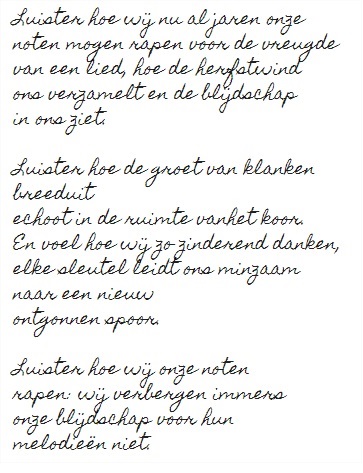 Luister hoe wij nu al jaren onze
noten mogen rapen voor de vreugde
van een lied, hoe de herfstwind
ons verzamelt en de blijdschap
in ons ziet.

Luister hoe de groet van klanken
breeduit
echoot in de ruimte vanhet koor.
En voel hoe wij zo zinderend danken,
elke sleutel leidt ons minzaam
naar een nieuw
ontgonnen spoor.

Luister hoe wij onze noten
rapen: wij verbergen immers
onze blijdschap voor hun
melodieën niet.